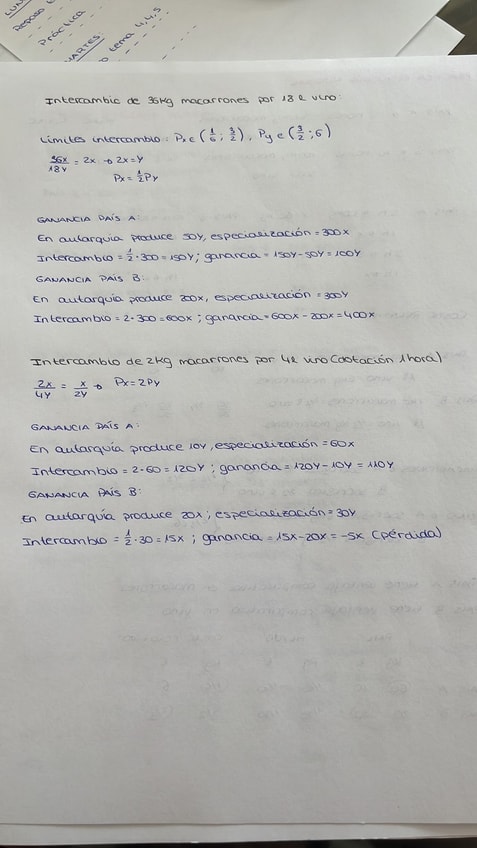 Reposo
Práctica
MARTES
tema 4,4,5
Intercambio de 36kg macarrones por 18 l vino:
Límites intercambio: Px ∈ (1/6 ; 3/2), Py ∈ (3/2 ; 6)
36x/18y = 2x → 2x = y
Px = 1/2 Py
GANANCIA PAÍS A:
En autarquía produce 50y, especialización = 300x
Intercambio = 1/2 · 300 = 150y; ganancia = 150y - 50y = 100y
GANANCIA PAÍS B:
En autarquía produce 200x, especialización = 300y
Intercambio = 2 · 300 = 600x ; ganancia = 600x - 200x = 400x
Intercambio de 2kg macarrones por 4l vino (dotación 1 hora)
2x/4y = x/2y → Px = 2Py
GANANCIA PAÍS A:
En autarquía produce 10y, especialización = 60x
Intercambio = 2 · 60 = 120y ; ganancia = 120y - 10y = 110y
GANANCIA PAÍS B:
En autarquía produce 20x; especialización = 30y
Intercambio = 1/2 · 30 = 15x ; ganancia = 15x - 20x = -5x (pérdida)